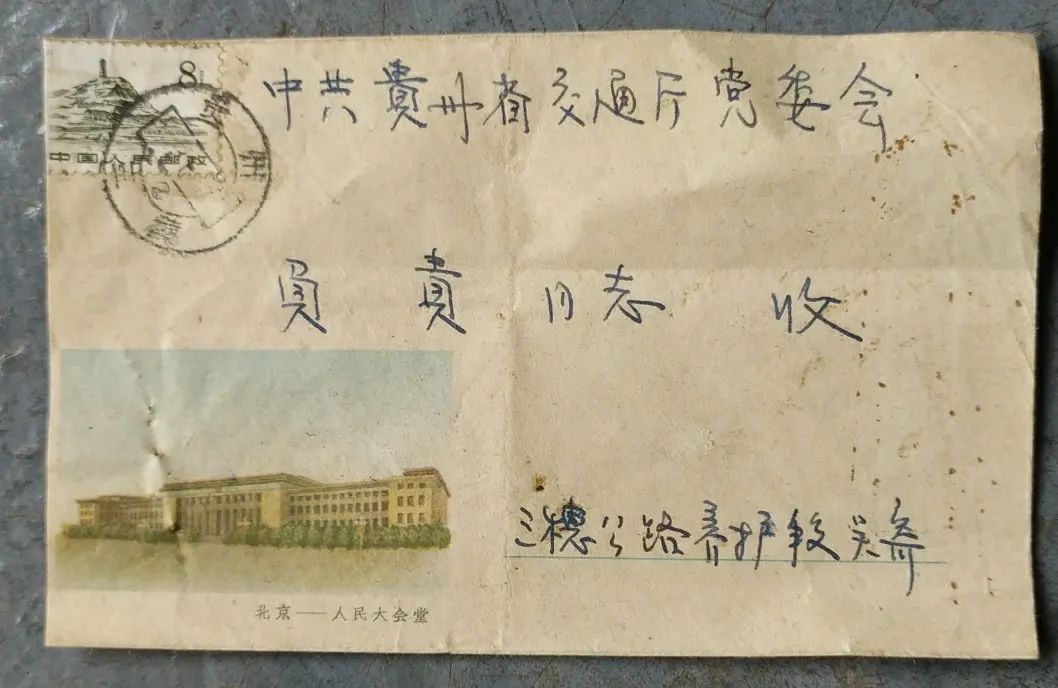 8
中国人民邮政
中共貴州省交通厅党委会
員貴同志 收
三穗公路养护段吴寄
北京——人民大会堂